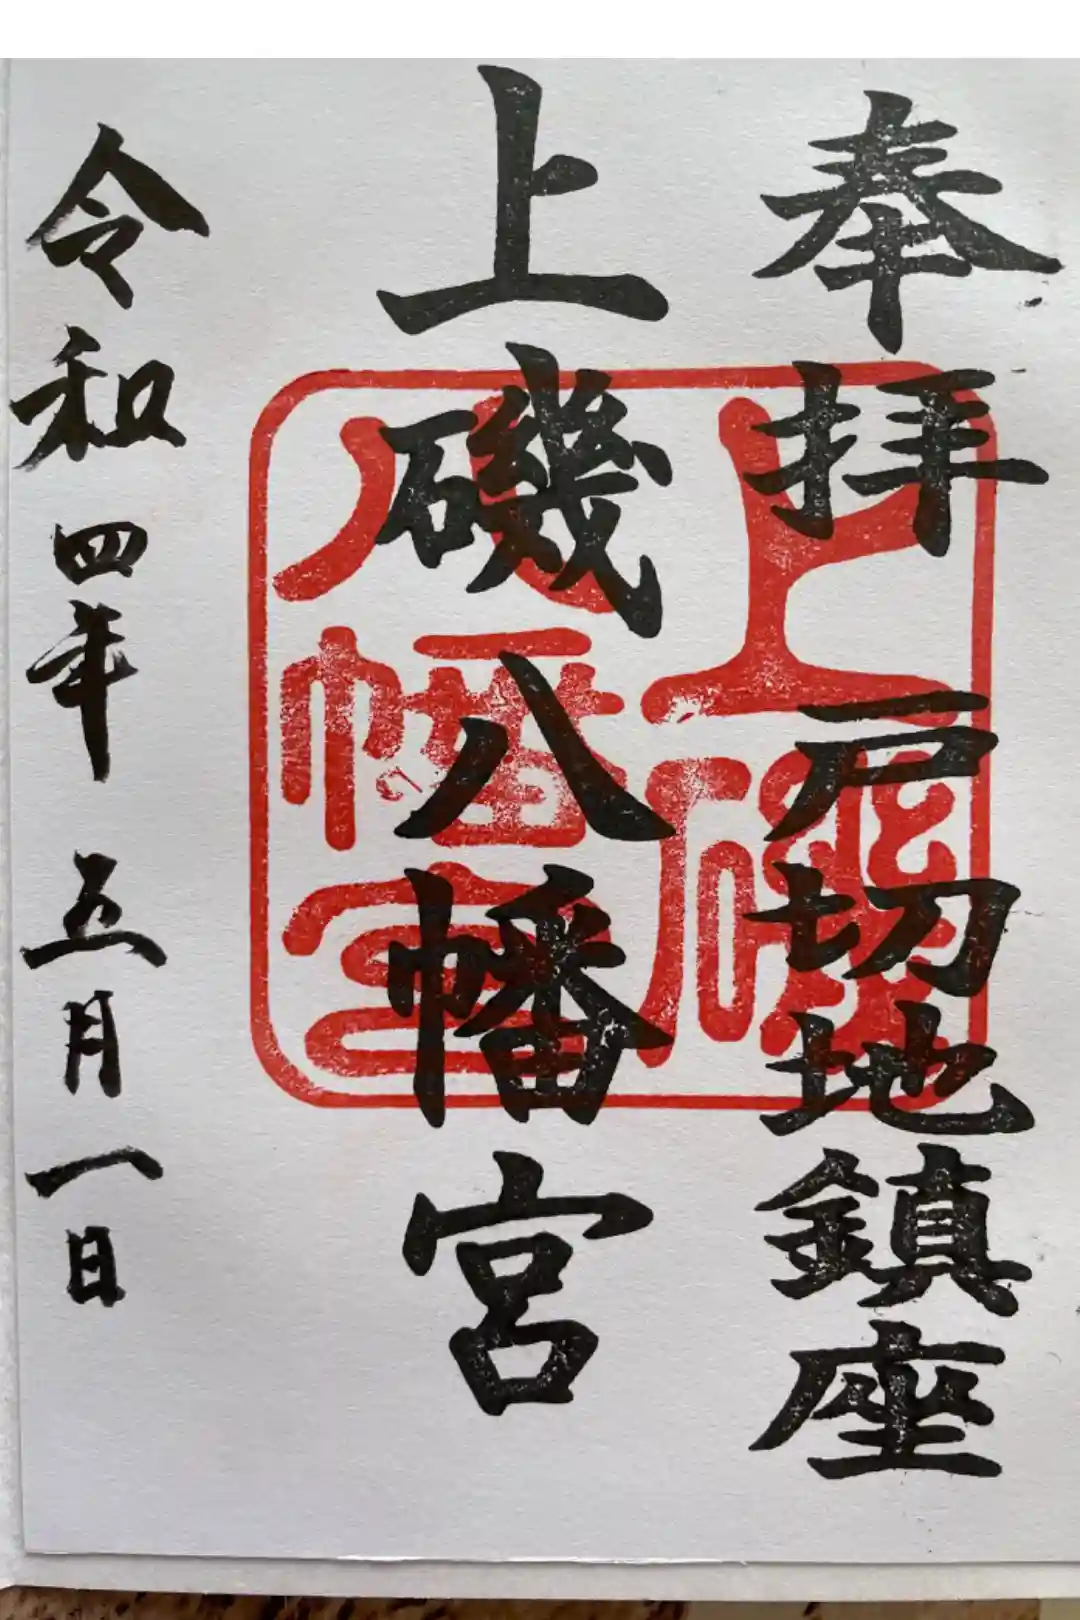 奉拝 戸切地鎮座
上磯八幡宮
令和四年五月一日
上磯
八幡宮